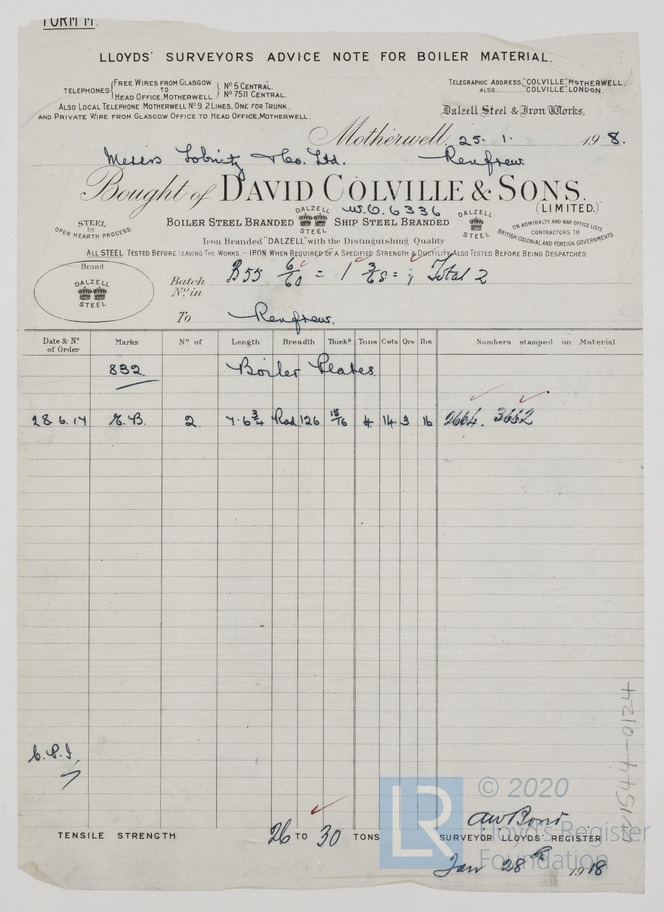 FORM M.
LLOYDS' SURVEYORS ADVICE NOTE FOR BOILER MATERIAL.
TELEPHONES { FREE WIRES FROM GLASGOW TO HEAD OFFICE, MOTHERWELL } Nº 5 CENTRAL. Nº 7511 CENTRAL.
ALSO LOCAL TELEPHONE MOTHERWELL Nº 9. 2 LINES, ONE FOR TRUNK,
AND PRIVATE WIRE FROM GLASGOW OFFICE TO HEAD OFFICE, MOTHERWELL.
TELEGRAPHIC ADDRESS, "COLVILLE, MOTHERWELL.
ALSO "COLVILLE, LONDON.
Dalzell Steel & Iron Works,
Motherwell, 25. 1. 19 8.
Messrs Lobnitz & Co. Ltd. Renfrew
Bought of DAVID COLVILLE & SONS.
(LIMITED.)
W.O. 6336
STEEL BY OPEN HEARTH PROCESS.
BOILER STEEL BRANDED DALZELL STEEL SHIP STEEL BRANDED DALZELL STEEL
ON ADMIRALTY AND WAR OFFICE LISTS
CONTRACTORS TO
BRITISH COLONIAL AND FOREIGN GOVERNMENTS.
Iron Branded "DALZELL" with the Distinguishing Quality
ALL STEEL TESTED BEFORE LEAVING THE WORKS – IRON WHEN REQUIRED OF A SPECIFIED STRENGTH & DUCTILITY ALSO TESTED BEFORE BEING DESPATCHED
Brand
DALZELL
STEEL
Batch Nº in B55 6/60 = 1 3/65 = 1 Total 2
To Renfrew.
Date & Nº of Order Marks Nº of Length Breadth Thickˢ Tons Cwts Qrs lbs Numbers stamped on Material
832 Boiler Plates
28.6.17 2. 7.6 3/4 Rad 126 15/16 4 14 3 16 2664. 3662
TENSILE STRENGTH 26 TO 30 TONS
SURVEYOR LLOYDS' REGISTER
Jan 28th 1918
© 2020
LR
Lloyd's Register
Foundation
W1544-0124